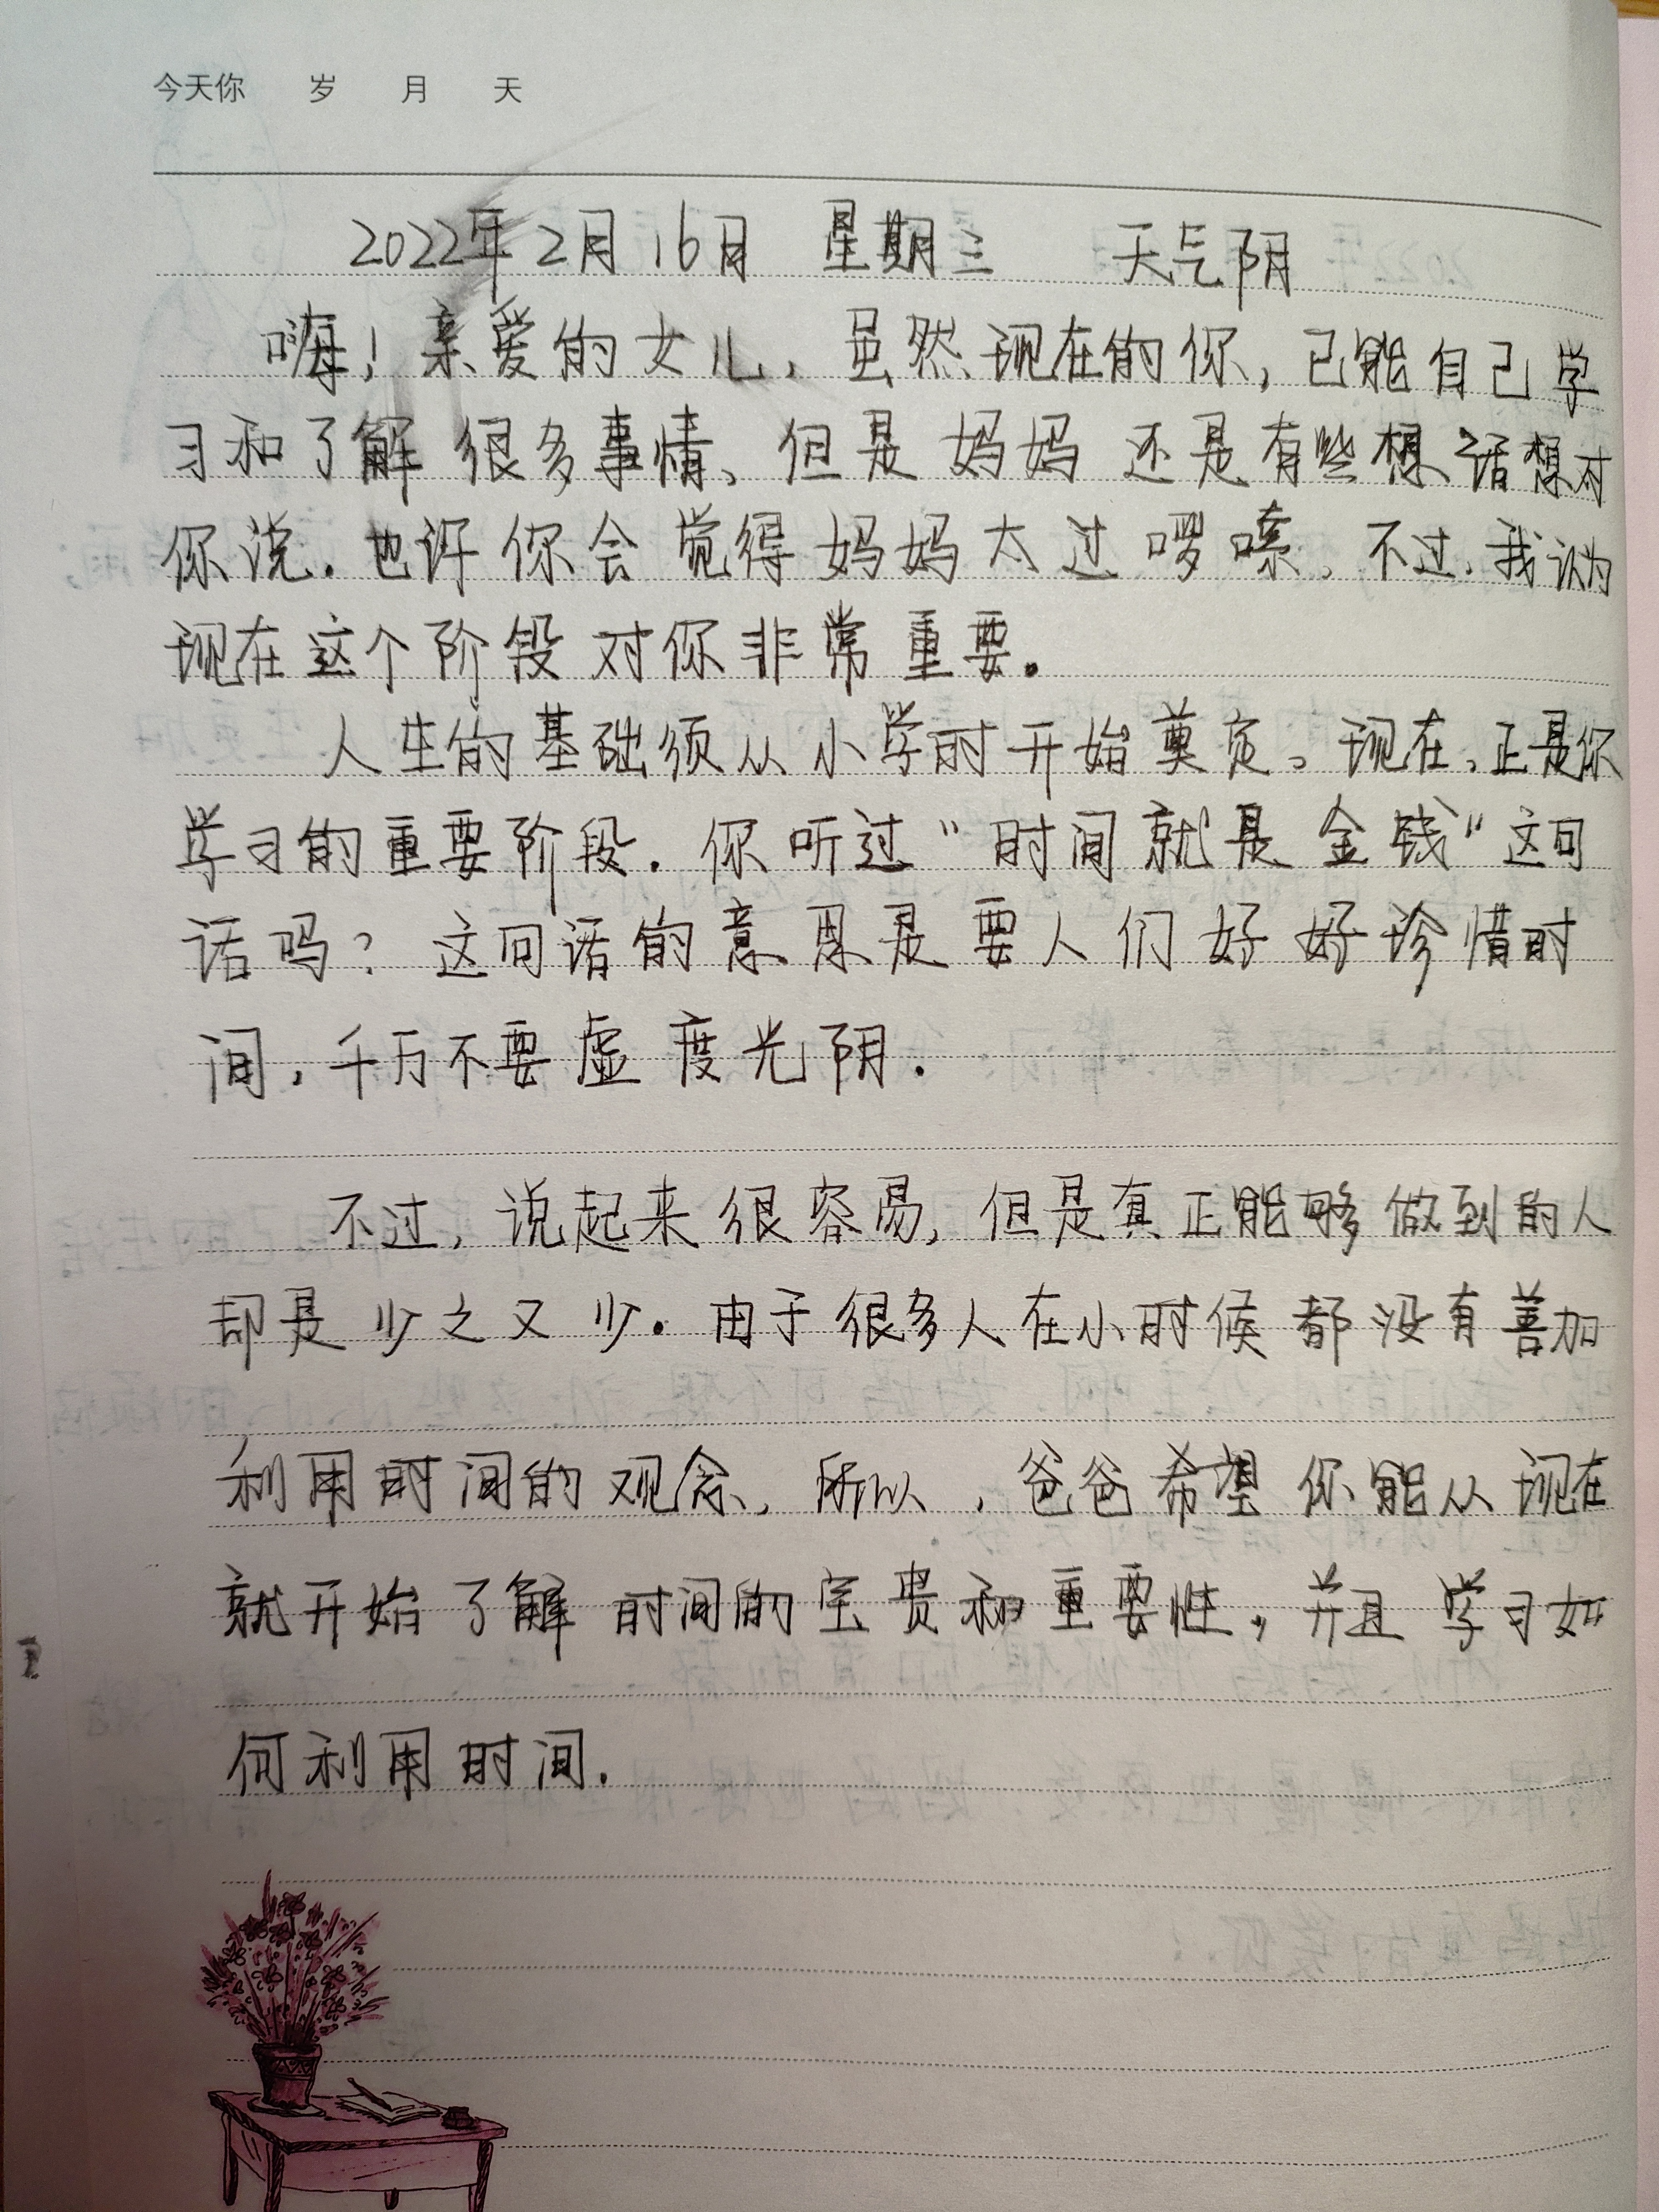 今天你 岁 月 天
2022年2月16日 星期三 天气阴
嗨！亲爱的女儿，虽然现在的你，已能自己学
习和了解很多事情、但是妈妈还是有些想话想对
你说．也许你会觉得妈妈太过啰嗦、不过，我认为
现在这个阶段对你非常重要。
人生的基础须从小学时开始奠定。现在，正是你
学习的重要阶段．你听过“时间就是金钱”这句
话吗？这句话的意思是要人们好好珍惜时
间，千万不要虚度光阴．
不过，说起来很容易，但是真正能够做到的人
却是少之又少．由于很多人在小时候都没有善加
利用时间的观念，所以，爸爸希望你能从现在
就开始了解时间的宝贵和重要性，并且学习如
何利用时间．